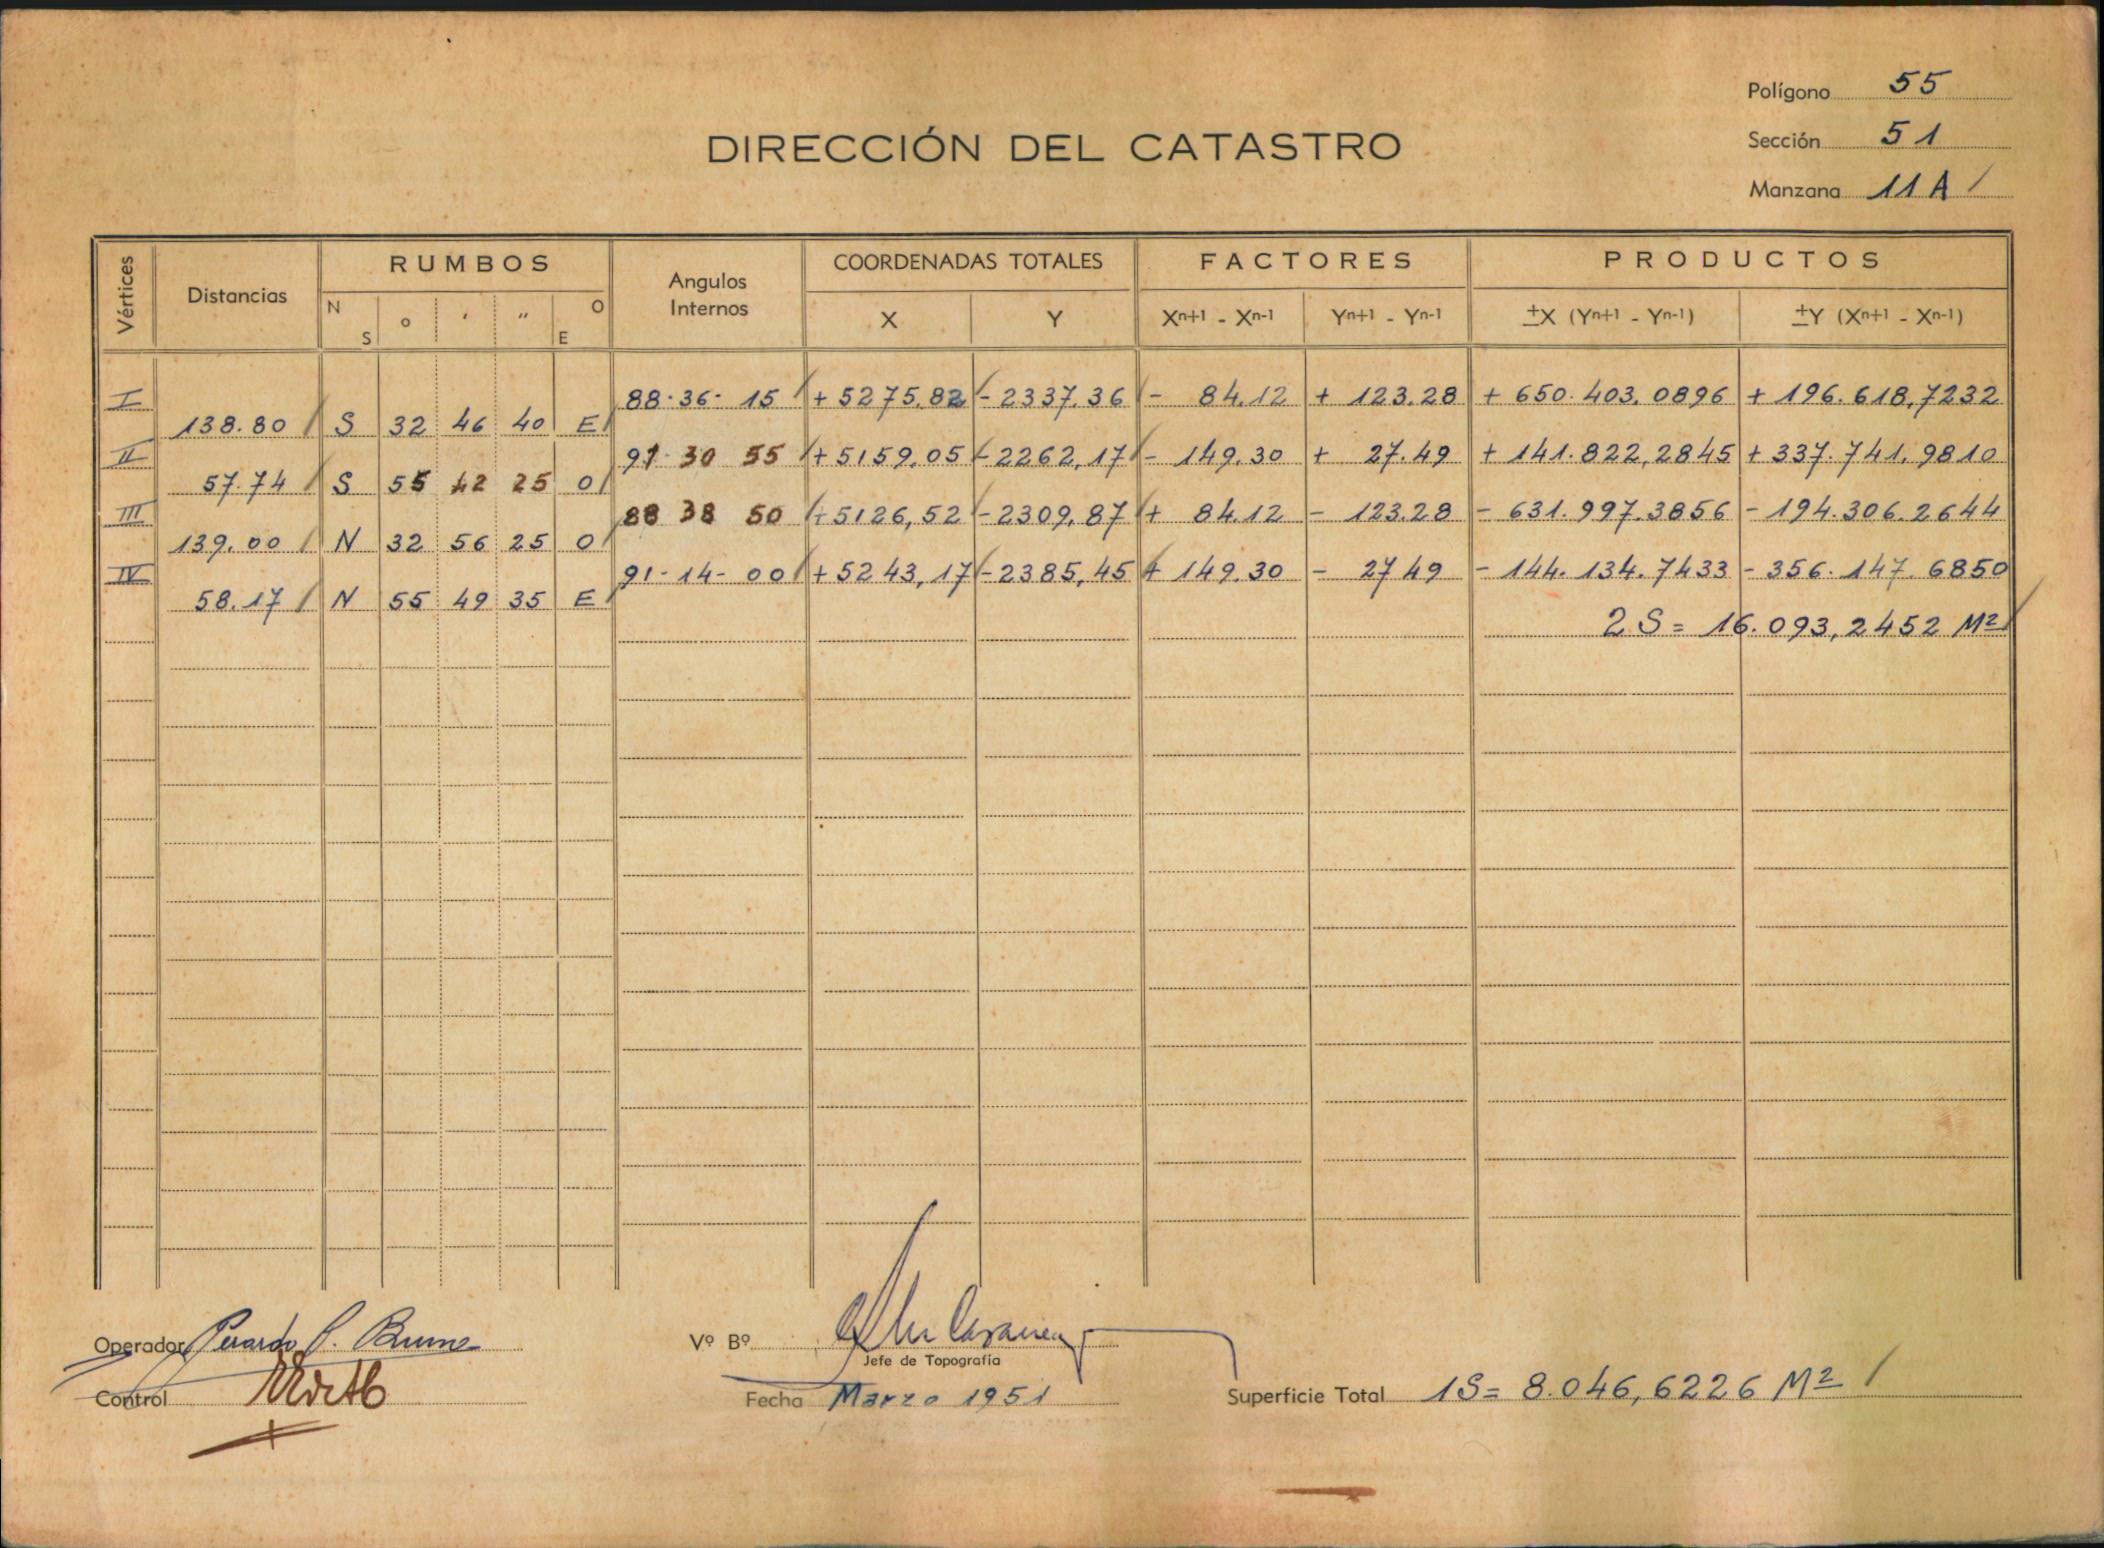 Polígono 55
DIRECCIÓN DEL CATASTRO
Sección 51
Manzana 11 A
Vértices Distancias RUMBOS Angulos Internos COORDENADAS TOTALES FACTORES PRODUCTOS
N S o ' '' O E X Y Xn+1 - Xn-1 Yn+1 - Yn-1 ±X (Yn+1 - Yn-1) ±Y (Xn+1 - Xn-1)
I 88-36-15 + 5275,82 - 2337,36 - 84,12 + 123.28 + 650.403,0896 + 196.618,7232
138.80 S 32 46 40 E
II 91 30 55 + 5159,05 - 2262,17 - 149,30 + 27.49 + 141.822,2845 + 337.741,9810
57.74 S 55 42 25 O
III 88 38 50 + 5126,52 - 2309,87 + 84.12 - 123.28 - 631.997.3856 - 194.306.2644
139.00 N 32 56 25 O
IV 91-14-00 + 5243,17 - 2385,45 + 149.30 - 27 49 - 144.134.7433 - 356.147.6850
58.17 N 55 49 35 E
2 S = 16.093,2452 M2
Operador
Vº Bº
Jefe de Topografía
Control
Fecha Marzo 1951
Superficie Total 1S= 8.046,6226 M2